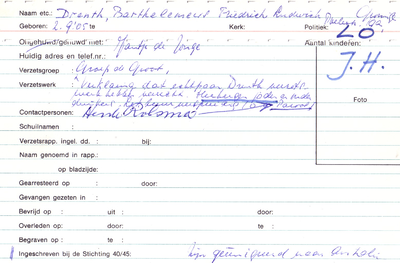 Naam etc.: Drenth, Barthelomeus Friedrich Lindewich
Geboren: 2.9.'05 te Kerk: Politiek:
Ongehuwd/gehuwd met: Mantje de Jonge Aantal kinderen:
20
Huidig adres en telef.nr.: J.H.
Verzetsgroep: Groep de Groot,
Verzetswerk: Verklaring dat echtpaar Drenth verzets-
werk hebben verricht. Herbergen joden en onder
duikers, Parool
Contactpersonen: Henk Robsma
Foto
Schuilnamen:
Verzetsrapp. ingel. dd.: bij:
Naam genoemd in rapp.:
op bladzijde:
Gearresteerd op: door:
Gevangen gezeten in:
Bevrijd op: uit: door:
Overleden op: te: door:
Begraven op: te:
Ingeschreven bij de Stichting 40/45: zijn geëmigreerd naar